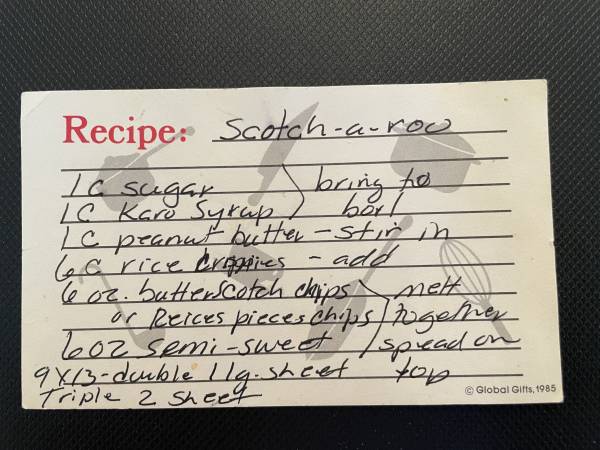 Recipe: Scotch-a-roo
1C sugar bring to
1C Karo Syrup boil
1C peanut butter - stir in
6C rice krispies - add
6 oz. butterscotch chips melt
or Reices pieces chips together
6oz semi-sweet spread on
9x13-double 1 lg. sheet top
Triple 2 sheet
© Global Gifts, 1985